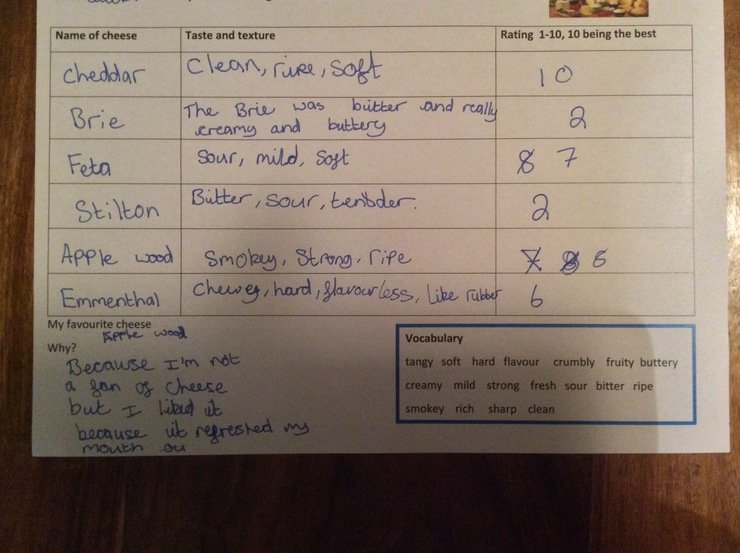 Name of cheese Taste and texture Rating 1-10, 10 being the best
Cheddar Clean, ripe, soft 10
Brie The Brie was bitter and really
creamy and buttery 2
Feta Sour, mild, Soft 8 7
Stilton Bitter, sour, tenbder. 2
Apple wood Smokey, Strong, ripe 7 8 6
Emmenthal Chewey, hard, flavourless, Like rubber 6
My favourite cheese
Apple wood
Why?
Because I'm not
a fan of cheese
but I liked it
because it refreshed my
mouth ou
Vocabulary
tangy soft hard flavour crumbly fruity buttery
creamy mild strong fresh sour bitter ripe
smokey rich sharp clean